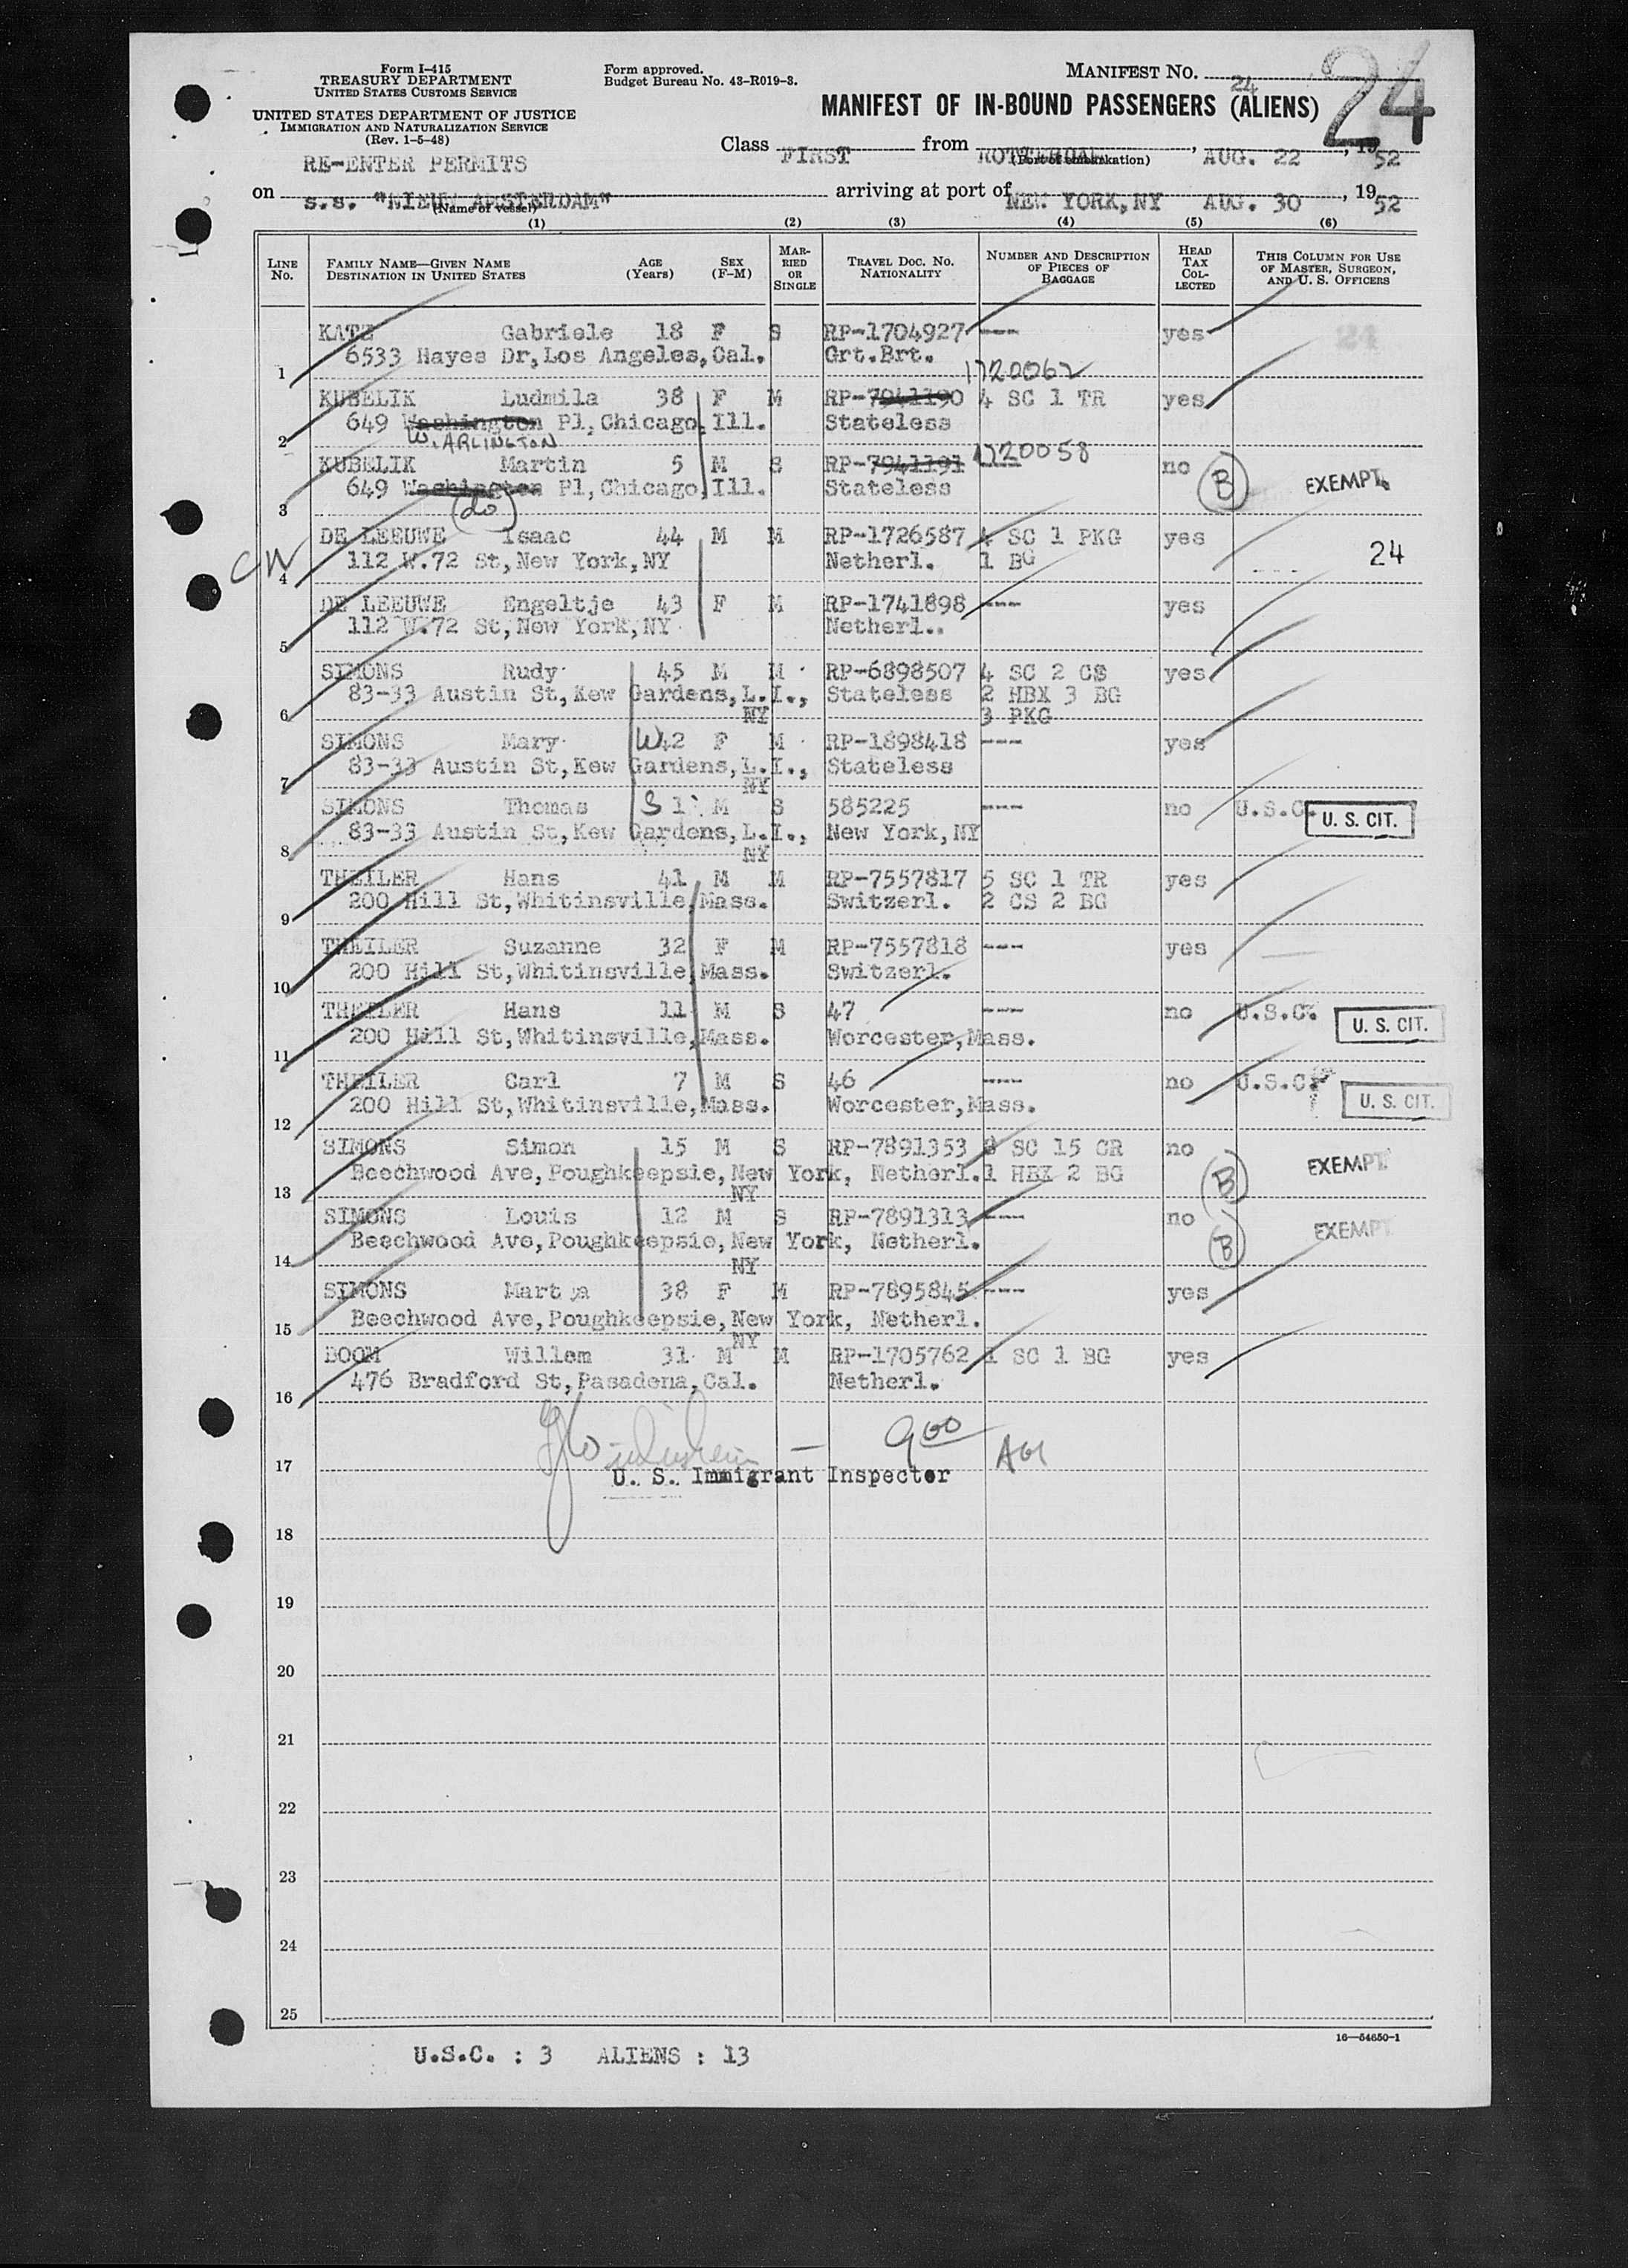 Form I-415
TREASURY DEPARTMENT
UNITED STATES CUSTOMS SERVICE
UNITED STATES DEPARTMENT OF JUSTICE
IMMIGRATION AND NATURALIZATION SERVICE
(Rev. 1-5-48)
Form approved.
Budget Bureau No. 43-R019-3.
MANIFEST NO. 24
24
MANIFEST OF IN-BOUND PASSENGERS (ALIENS)
Class FIRST from ROTTERDAM, AUG. 22, 1952
(Port of embarkation)
RE-ENTER PERMITS
on s.s. "NIEUW AMSTERDAM" arriving at port of NEW YORK,NY AUG. 30, 1952
(Name of vessel)
(1) (2) (3) (4) (5) (6)
LINE No. FAMILY NAME—GIVEN NAME DESTINATION IN UNITED STATES AGE (Years) SEX (F-M) MARRIED OR SINGLE TRAVEL DOC. NO. NATIONALITY NUMBER AND DESCRIPTION OF PIECES OF BAGGAGE HEAD TAX COLLECTED THIS COLUMN FOR USE OF MASTER, SURGEON, AND U. S. OFFICERS
KATZ Gabriele 18 F S RP-1704927 --- yes 24
1 6533 Hayes Dr,Los Angeles,Cal. Grt.Brt.
1720062
KUBELIK Ludmila 38 F M RP-7941190 4 SC 1 TR yes
2 649 Washington Pl,Chicago,Ill. Stateless
W. ARLINGTON
1720058
KUBELIK Martin 5 M S RP-7941191 --- no B EXEMPT
3 649 Washington Pl,Chicago,Ill. Stateless
(do)
CW DE LEEUWE Isaac 44 M M RP-1726587 4 SC 1 PKG yes 24
4 112 W.72 St,New York,NY Netherl. 1 BG
DE LEEUWE Engeltje 43 F M RP-1741898 --- yes
5 112 W.72 St,New York,NY Netherl.
SIMONS Rudy 45 M M RP-6898507 4 SC 2 CS yes
6 83-33 Austin St,Kew Gardens,L.I., NY Stateless 2 HBX 3 BG
3 PKG
SIMONS Mary W42 F M RP-1898418 --- yes
7 83-33 Austin St,Kew Gardens,L.I., NY Stateless
SIMONS Thomas S 1 M S 585225 --- no U.S.C. U. S. CIT.
8 83-33 Austin St,Kew Gardens,L.I., NY New York,NY
THEILER Hans 41 M M RP-7557817 5 SC 1 TR yes
9 200 Hill St,Whitinsville,Mass. Switzerl. 2 CS 2 BG
THEILER Suzanne 32 F M RP-7557818 --- yes
10 200 Hill St,Whitinsville,Mass. Switzerl.
THEILER Hans 11 M S 47 --- no U.S.C. U. S. CIT.
11 200 Hill St,Whitinsville,Mass. Worcester,Mass.
THEILER Carl 7 M S 46 --- no U.S.C. U. S. CIT.
12 200 Hill St,Whitinsville,Mass. Worcester,Mass.
SIMONS Simon 15 M S RP-7891353 SC 15 CR no B EXEMPT
13 Beechwood Ave,Poughkeepsie,New York, NY Netherl. 1 HBX 2 BG
SIMONS Louis 12 M S RP-7891313 --- no B EXEMPT
14 Beechwood Ave,Poughkeepsie,New York, NY Netherl.
SIMONS Martha 38 F M RP-7895845 --- yes
15 Beechwood Ave,Poughkeepsie,New York, NY Netherl.
BOOM Willem 31 M M RP-1705762 1 SC 1 BG yes
16 476 Bradford St,Pasadena,Cal. Netherl.
900
17 U. S. Immigrant Inspector
18
19
20
21
22
23
24
25
16—54650-1
U.S.C. : 3 ALIENS : 13